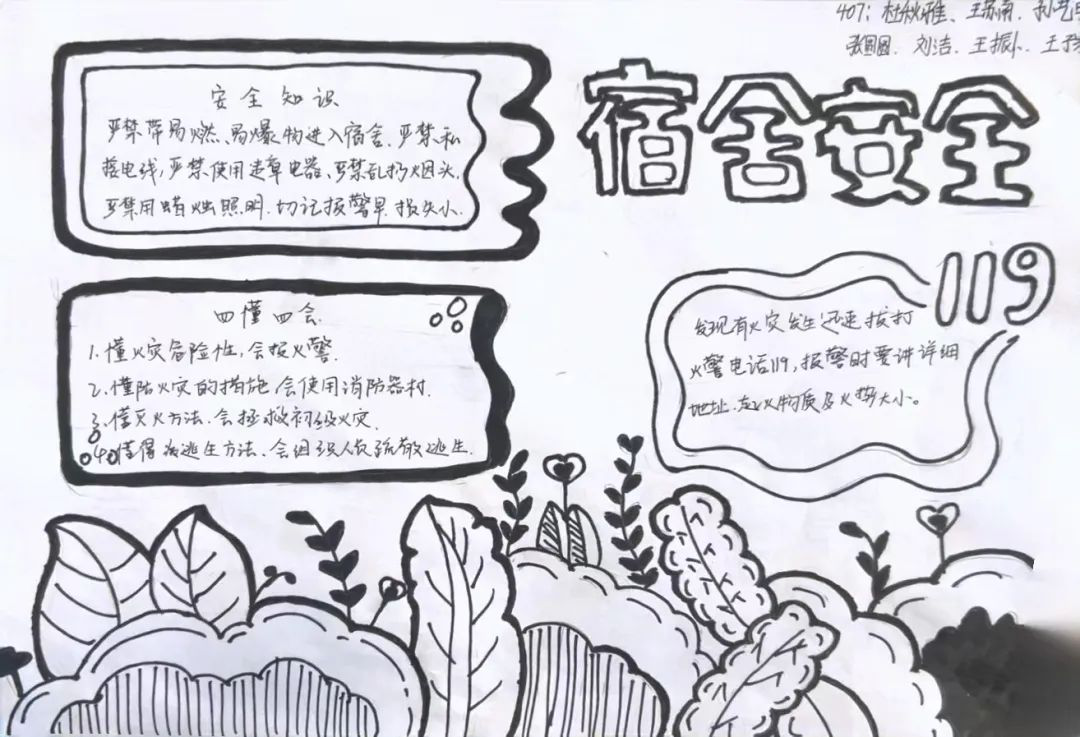 407：杜秋雅、王苏南、孙艺
刘洁、王振
宿舍安全
安全知识
严禁带易燃、易爆物进入宿舍、严禁私
接电线，严禁使用违章电器、严禁乱扔烟头、
严禁用蜡烛照明、切记报警早、损失小、
四懂四会
1、懂火灾危险性，会报火警、
2、懂防火灾的措施、会使用消防器材、
3、懂灭火方法、会拯救初级火灾、
4、懂得逃生方法、会组织人员疏散逃生、
119
发现有火灾发生迅速拔打
火警电话119，报警时要讲详细
地址、起火物质及火势大小。